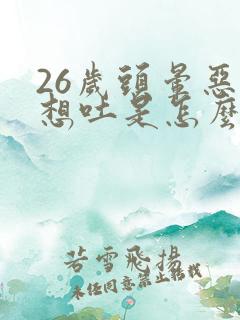 26歲頭暈惡
想吐是怎麼
若雪飛揚
未经同意禁止转载